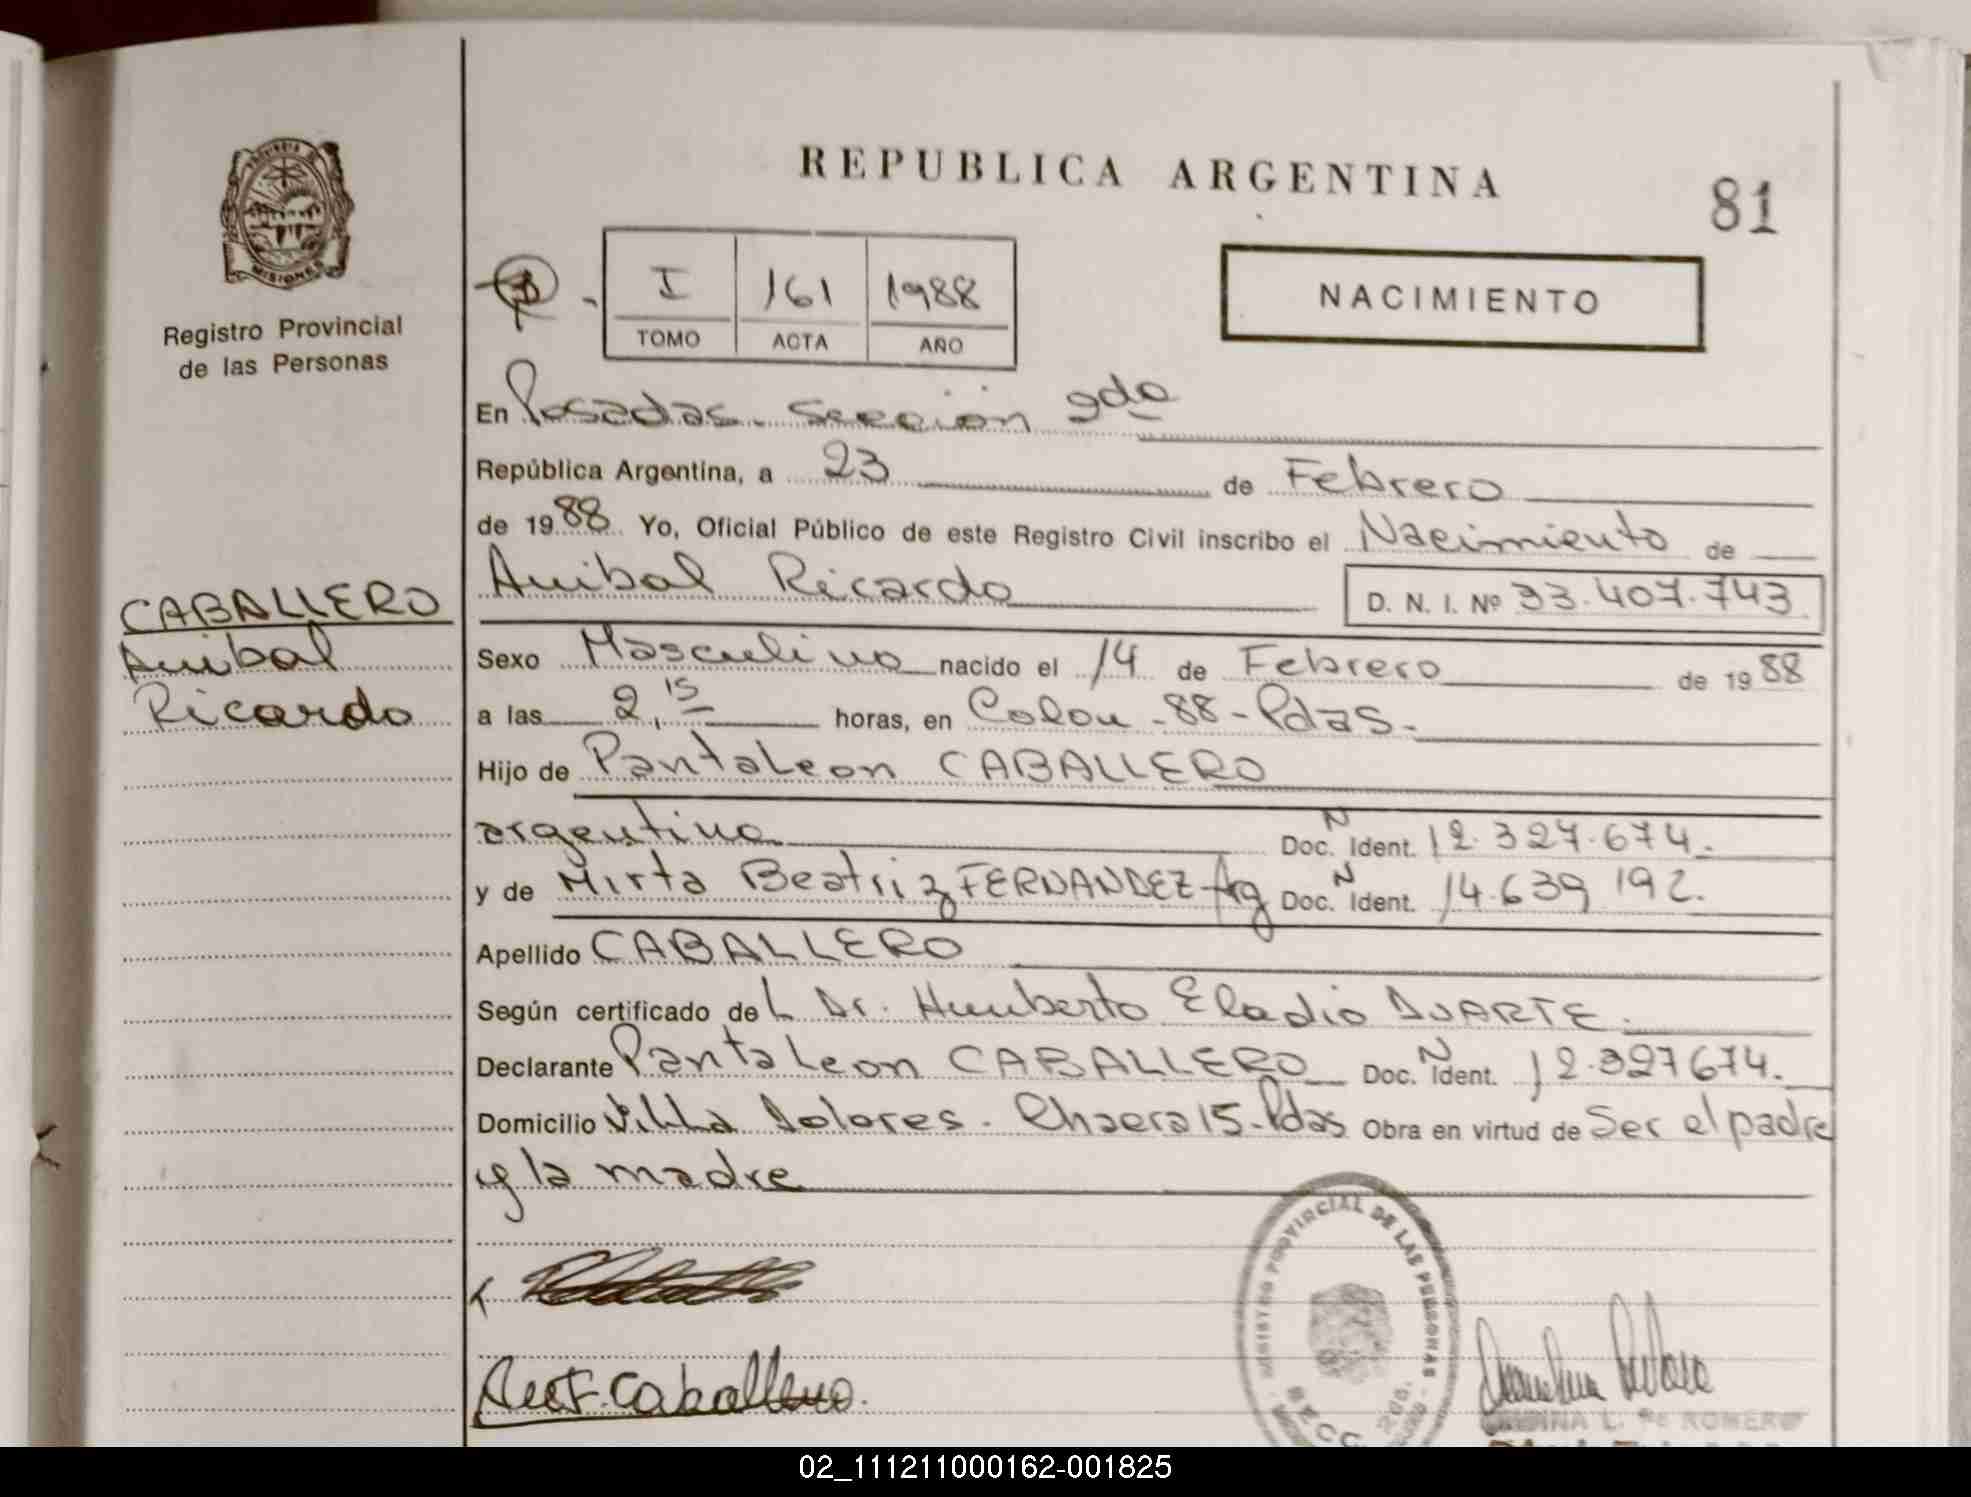 REPUBLICA ARGENTINA
81
PROVINCIA D
MISIONES
Registro Provincial
de las Personas
I 161 1988
TOMO ACTA AÑO
NACIMIENTO
En Posadas. Sección 2da
República Argentina, a 23 de Febrero
de 1988 Yo, Oficial Público de este Registro Civil inscribo el Nacimiento de
Anibal Ricardo D. N. I. Nº 33.407.743
CABALLERO
Anibal
Ricardo
Sexo Masculino nacido el 14 de Febrero de 1988
a las 2,15 horas, en Colon - 88 - Pdas.
Hijo de Pantaleon CABALLERO
argentino Doc. N Ident. 12.327.674.
y de Mirta Beatriz FERNANDEZ Arg Doc. N Ident. 14.639 192.
Apellido CABALLERO
Según certificado del Dr. Humberto Eladio DUARTE.
Declarante Pantaleon CABALLERO Doc. N Ident. 12.327674.
Domicilio Villa Dolores - Chacra 15 - Pdas Obra en virtud de Ser el padre
y la madre
REGISTRO PROVINCIAL DE LAS PERSONAS
SECC. 2da.
Caballero.
L. de ROMERO
02_111211000162-001825